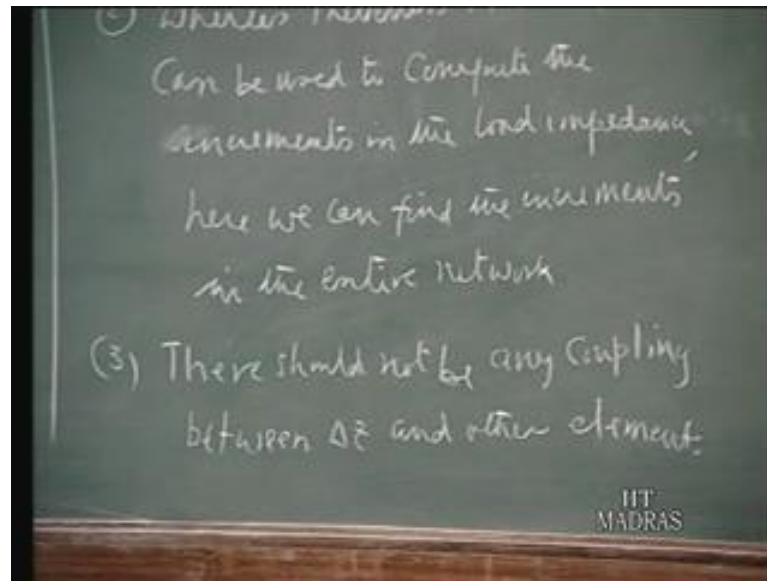 (2) Whereas Thevenin's
Can be used to Compute the
increments in the load impedance,
here we can find the increments
in the entire network
(3) There should not be any Coupling
between Δz and other element.
IIT
MADRAS